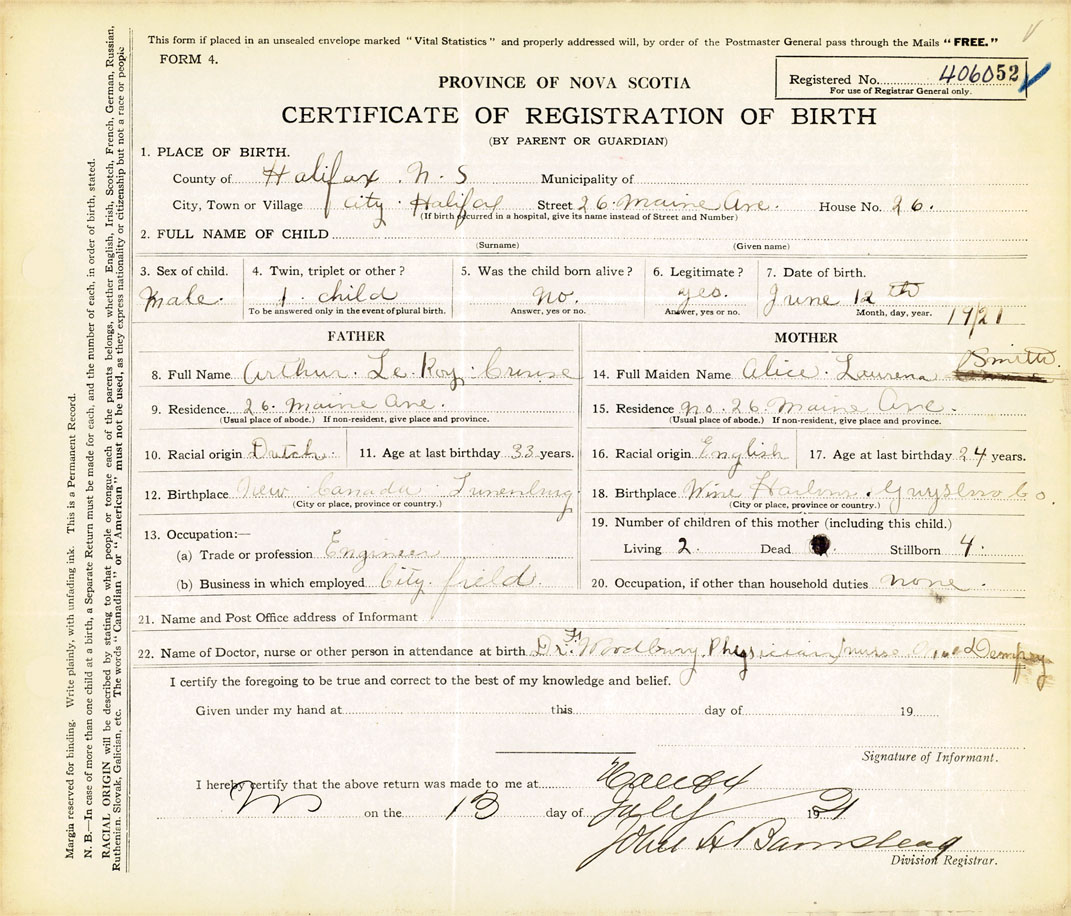 This form if placed in an unsealed envelope marked "Vital Statistics" and properly addressed will, by order of the Postmaster General pass through the Mails "FREE."
FORM 4.
Registered No. 406052
For use of Registrar General only.
PROVINCE OF NOVA SCOTIA
CERTIFICATE OF REGISTRATION OF BIRTH
(BY PARENT OR GUARDIAN)
1. PLACE OF BIRTH.
County of Halifax. N. S Municipality of
City, Town or Village City. Halifax Street 26. Maine Ave. House No. 26.
(If birth occurred in a hospital, give its name instead of Street and Number)
2. FULL NAME OF CHILD
(Surname) (Given name)
3. Sex of child. 4. Twin, triplet or other? 5. Was the child born alive? 6. Legitimate? 7. Date of birth.
Male. 1. child no. yes. June 12th 1921
To be answered only in the event of plural birth. Answer, yes or no. Answer, yes or no. Month, day, year.
FATHER
8. Full Name Arthur. Le Roy. Crouse
9. Residence 26. Maine Ave.
(Usual place of abode.) If non-resident, give place and province.
10. Racial origin Dutch. 11. Age at last birthday 33 years.
12. Birthplace New Canada Lunenburg
(City or place, province or country.)
13. Occupation:—
(a) Trade or profession Engineer
(b) Business in which employed City. field.
MOTHER
14. Full Maiden Name Alice. Laurena Smith.
15. Residence no. 26. Maine Ave.
(Usual place of abode.) If non-resident, give place and province.
16. Racial origin English 17. Age at last birthday 24 years.
18. Birthplace Wine Harbour. Guysboro Co.
(City or place, province or country.)
19. Number of children of this mother (including this child.)
Living 2. Dead Stillborn 4.
20. Occupation, if other than household duties none.
21. Name and Post Office address of Informant
22. Name of Doctor, nurse or other person in attendance at birth Dr. F. Woodbury. Physician nurse Dempsey
I certify the foregoing to be true and correct to the best of my knowledge and belief.
Given under my hand at this day of 19
Signature of Informant.
I hereby certify that the above return was made to me at Halifax
on the 13 day of July 1921
John H Barnstead
Division Registrar.
Margin reserved for binding. Write plainly, with unfading ink. This is a Permanent Record.
N. B.—In case of more than one child at a birth, a Separate Return must be made for each, and the number of each, in order of birth, stated.
RACIAL ORIGIN will be described by stating to what people or tongue each of the parents belongs, whether English, Irish, Scotch, French, German, Russian,
Ruthenian, Slovak, Galician, etc. The words "Canadian" or "American" must not be used, as they express nationality or citizenship but not a race or people